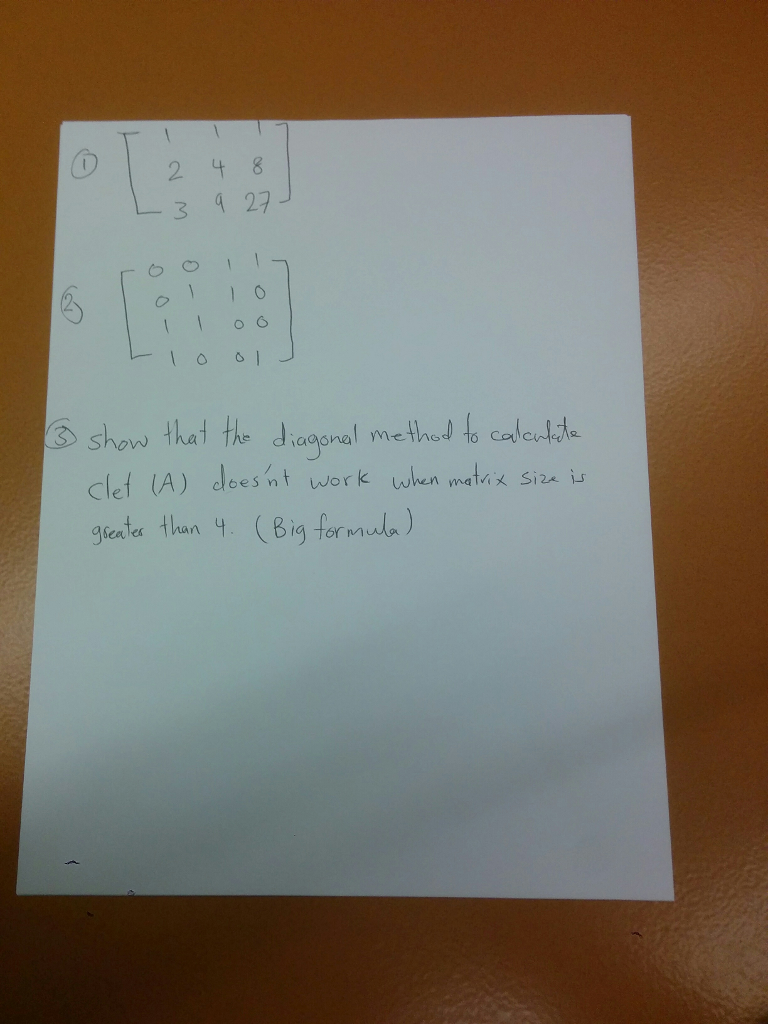 ① 1 1 1
2 4 8
3 9 27
② 0 0 1 1
0 1 1 0
1 1 0 0
1 0 0 1
③ show that the diagonal method to calculate
det (A) does'nt work when matrix size is
greater than 4. (Big formula)